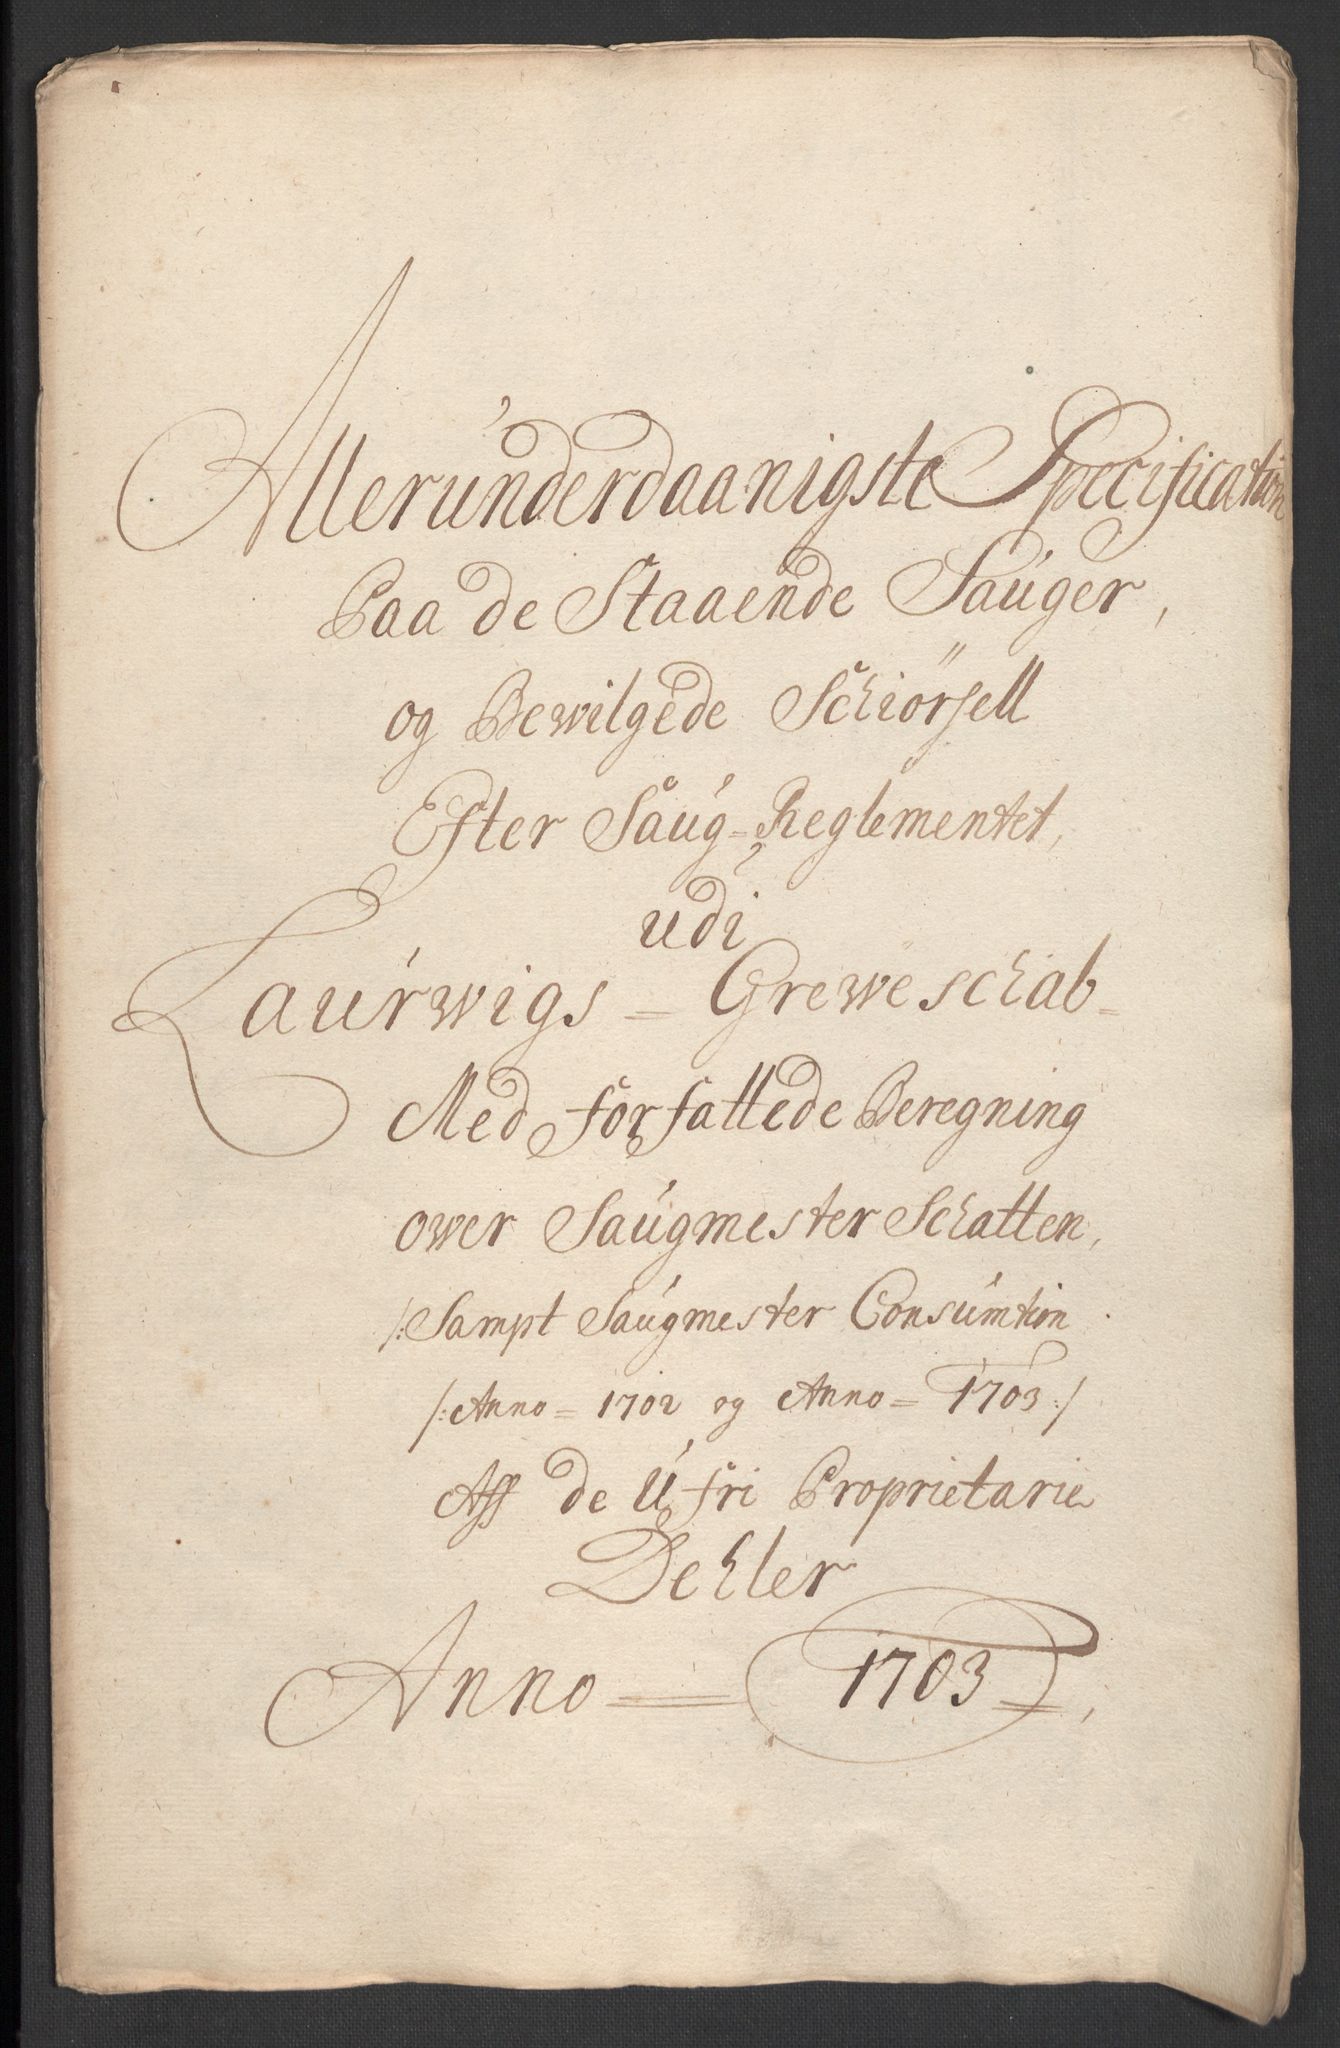 Allerúnderdaanigste Specification
Paa de Staaende Saúger,
og Bewilgede Schiörsell
Efter Saúg=Reglementet,
udi
Laúrwigs = Greweschab=
Med forfattede Beregning
ower Saúgmester Schatten,
/: Sampt Saúgmester Consúmtion
/: Anno = 1702 og Anno = 1703 :/
Aff de Ufri Proprietarie
Dehler
Anno = 1703 =,